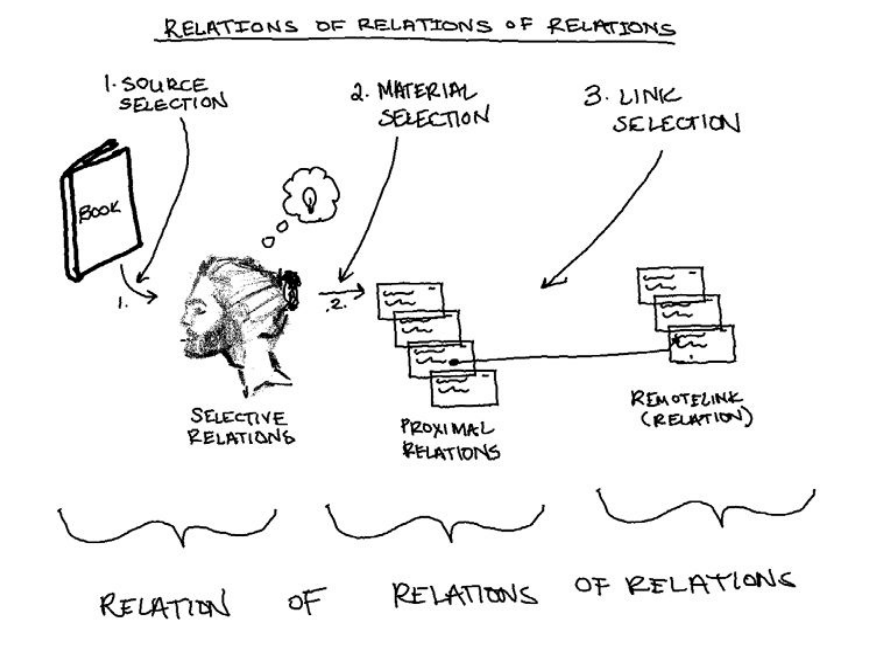 RELATIONS OF RELATIONS OF RELATIONS
1. SOURCE
SELECTION
2. MATERIAL
SELECTION
3. LINK
SELECTION
BOOK
1.
.2.
SELECTIVE
RELATIONS
PROXIMAL
RELATIONS
REMOTELINK
(RELATION)
RELATION OF RELATIONS OF RELATIONS